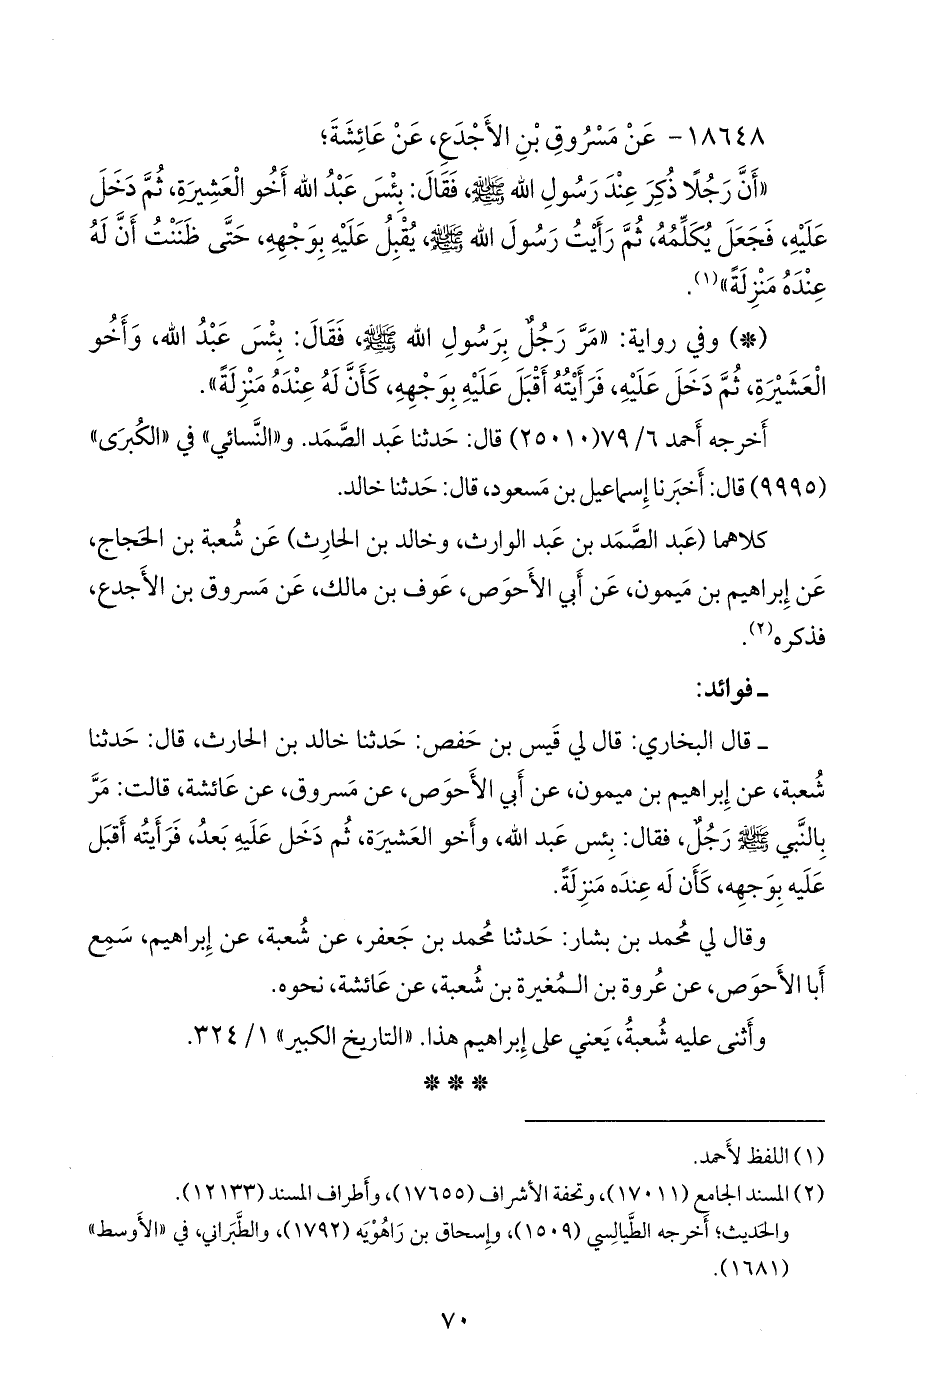 ١٨٦٤٨- عَنْ مَسْرُوقِ بْنِ الأَجْدَعِ، عَنْ عَائِشَةَ؛
«أَنَّ رَجُلًا ذُكِرَ عِنْدَ رَسُولِ الله ﷺ، فَقَالَ: بِئْسَ عَبْدُ الله أَخُو الْعَشِيرَةِ، ثُمَّ دَخَلَ
عَلَيْهِ، فَجَعَلَ يُكَلِّمُهُ، ثُمَّ رَأَيْتُ رَسُولَ الله ﷺ، يُقْبِلُ عَلَيْهِ بِوَجْهِهِ، حَتَّى ظَنَنْتُ أَنَّ لَهُ
عِنْدَهُ مَنْزِلَةً»(١).
(*) وفي رواية: «مَرَّ رَجُلٌ بِرَسُولِ الله ﷺ، فَقَالَ: بِئْسَ عَبْدُ الله، وَأَخُو
الْعَشَيْرَةِ، ثُمَّ دَخَلَ عَلَيْهِ، فَرَأَيْتُهُ أَقْبَلَ عَلَيْهِ بِوَجْهِهِ، كَأَنَّ لَهُ عِنْدَهُ مَنْزِلَةً».
أَخرجه أَحمد ٦/ ٧٩(٢٥٠١٠) قال: حَدثنا عَبد الصَّمَد. و«النَّسائي» في «الكُبرَى»
(٩٩٩٥) قال: أَخبَرنا إِسماعيل بن مَسعود، قال: حَدثنا خالد.
كلاهما (عَبد الصَّمَد بن عَبد الوارث، وخالد بن الحارِث) عَن شُعبة بن الحَجاج،
عَن إِبراهيم بن مَيمون، عَن أَبي الأَحوَص، عَوف بن مالك، عَن مَسروق بن الأَجدع،
فذكره(٢).
ـ فوائد:
ـ قال البخاري: قال لي قَيس بن حَفص: حَدثنا خالد بن الحارث، قال: حَدثنا
شُعبة، عن إِبراهيم بن ميمون، عن أَبي الأَحوَص، عن مَسروق، عن عَائشة، قالت: مَرَّ
بِالنَّبي ﷺ رَجُلٌ، فقال: بِئس عَبد الله، وأَخو العَشيرة، ثُم دَخَل عَلَيهِ بَعدُ، فَرَأَيتُه أَقبَل
عَلَيه بِوَجهِه، كَأَن لَه عِندَه مَنزِلَةً.
وقال لي مُحمد بن بشار: حَدثنا مُحمد بن جَعفر، عن شُعبة، عن إِبراهيم، سَمِع
أَبا الأَحوَص، عن عُروة بن الـمُغيرة بن شُعبة، عن عَائشة، نحوه.
وأَثنى عليه شُعبةُ، يَعني على إِبراهيم هذا. «التاريخ الكبير» ١/ ٣٢٤.
* * *
(١) اللفظ لأَحمد.
(٢) المسند الجامع (١٧٠١١)، وتحفة الأشراف (١٧٦٥٥)، وأَطراف المسند (١٢١٣٣).
والحَديث؛ أَخرجه الطَّيالِسي (١٥٠٩)، وإِسحاق بن رَاهُوْيَه (١٧٩٢)، والطَّبَراني، في «الأَوسط»
(١٦٨١).
٧٠